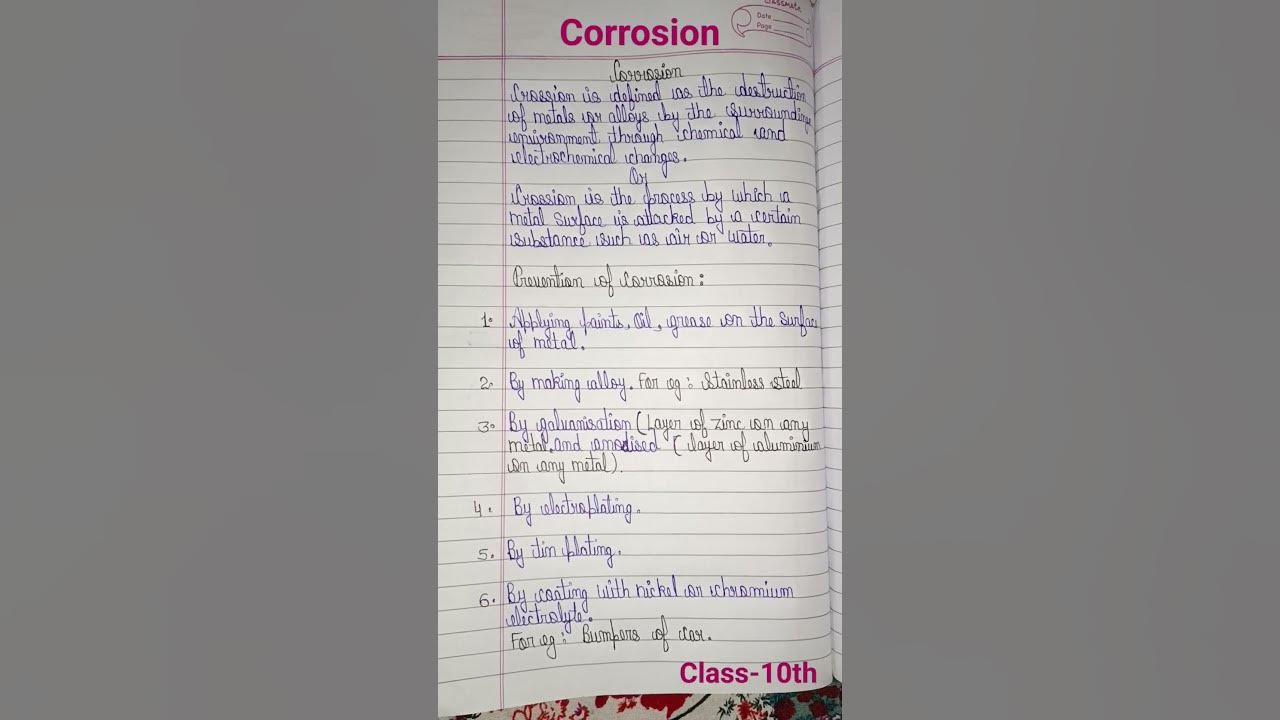 classmate
Date
Page
Corrosion
Corrosion
Crossion is defined as the destruction
of metals or alloys by the surrounding
environment through chemical and
electrochemical changes.
Or
Crossion is the process by which a
metal surface is attacked by a certain
substance such as air or water.
Prevention of corrosion:
1. Applying paints, Oil, grease on the surface
of metal.
2. By making alloy. For eg: Stainless steel
3. By galvanisation (Layer of zinc on any
metal, and anodised (layer of aluminium
on any metal).
4. By electroplating.
5. By tin plating.
6. By coating with nickel or chromium
electrolyte.
For eg: Bumpers of car.
Class-10th